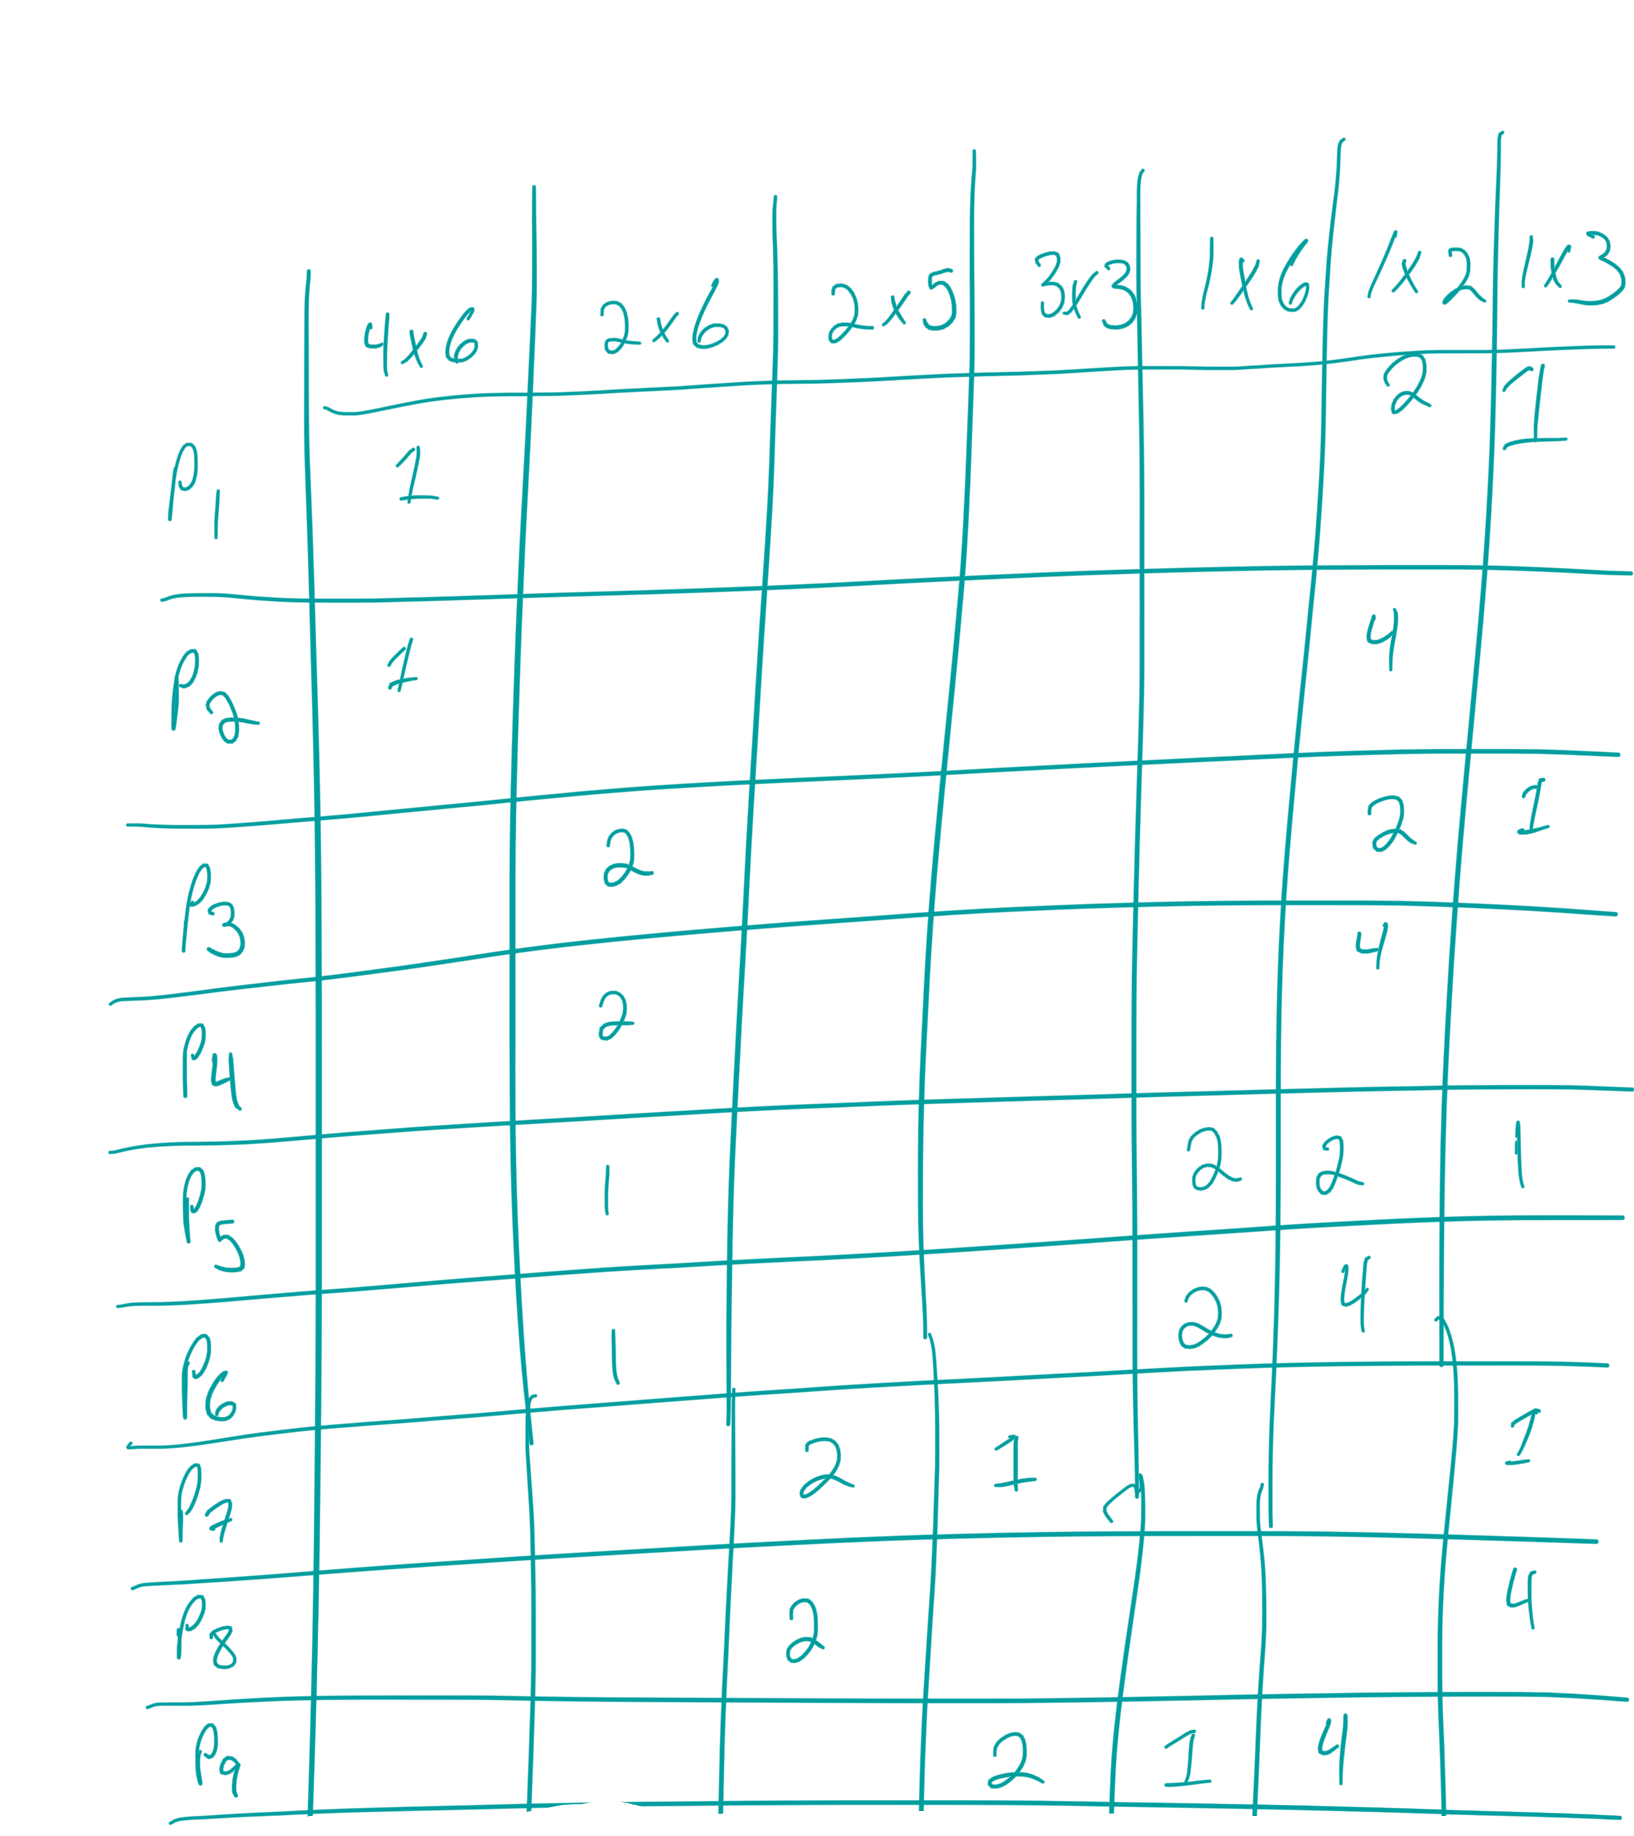 4x6 2x6 2x5 3x3 1x6 1x2 1x3
P1 1 2 1
P2 1 4
P3 2 2 1
P4 2 4
P5 1 2 2 1
P6 1 2 4
P7 2 1 1
P8 2 4
P9 2 1 4